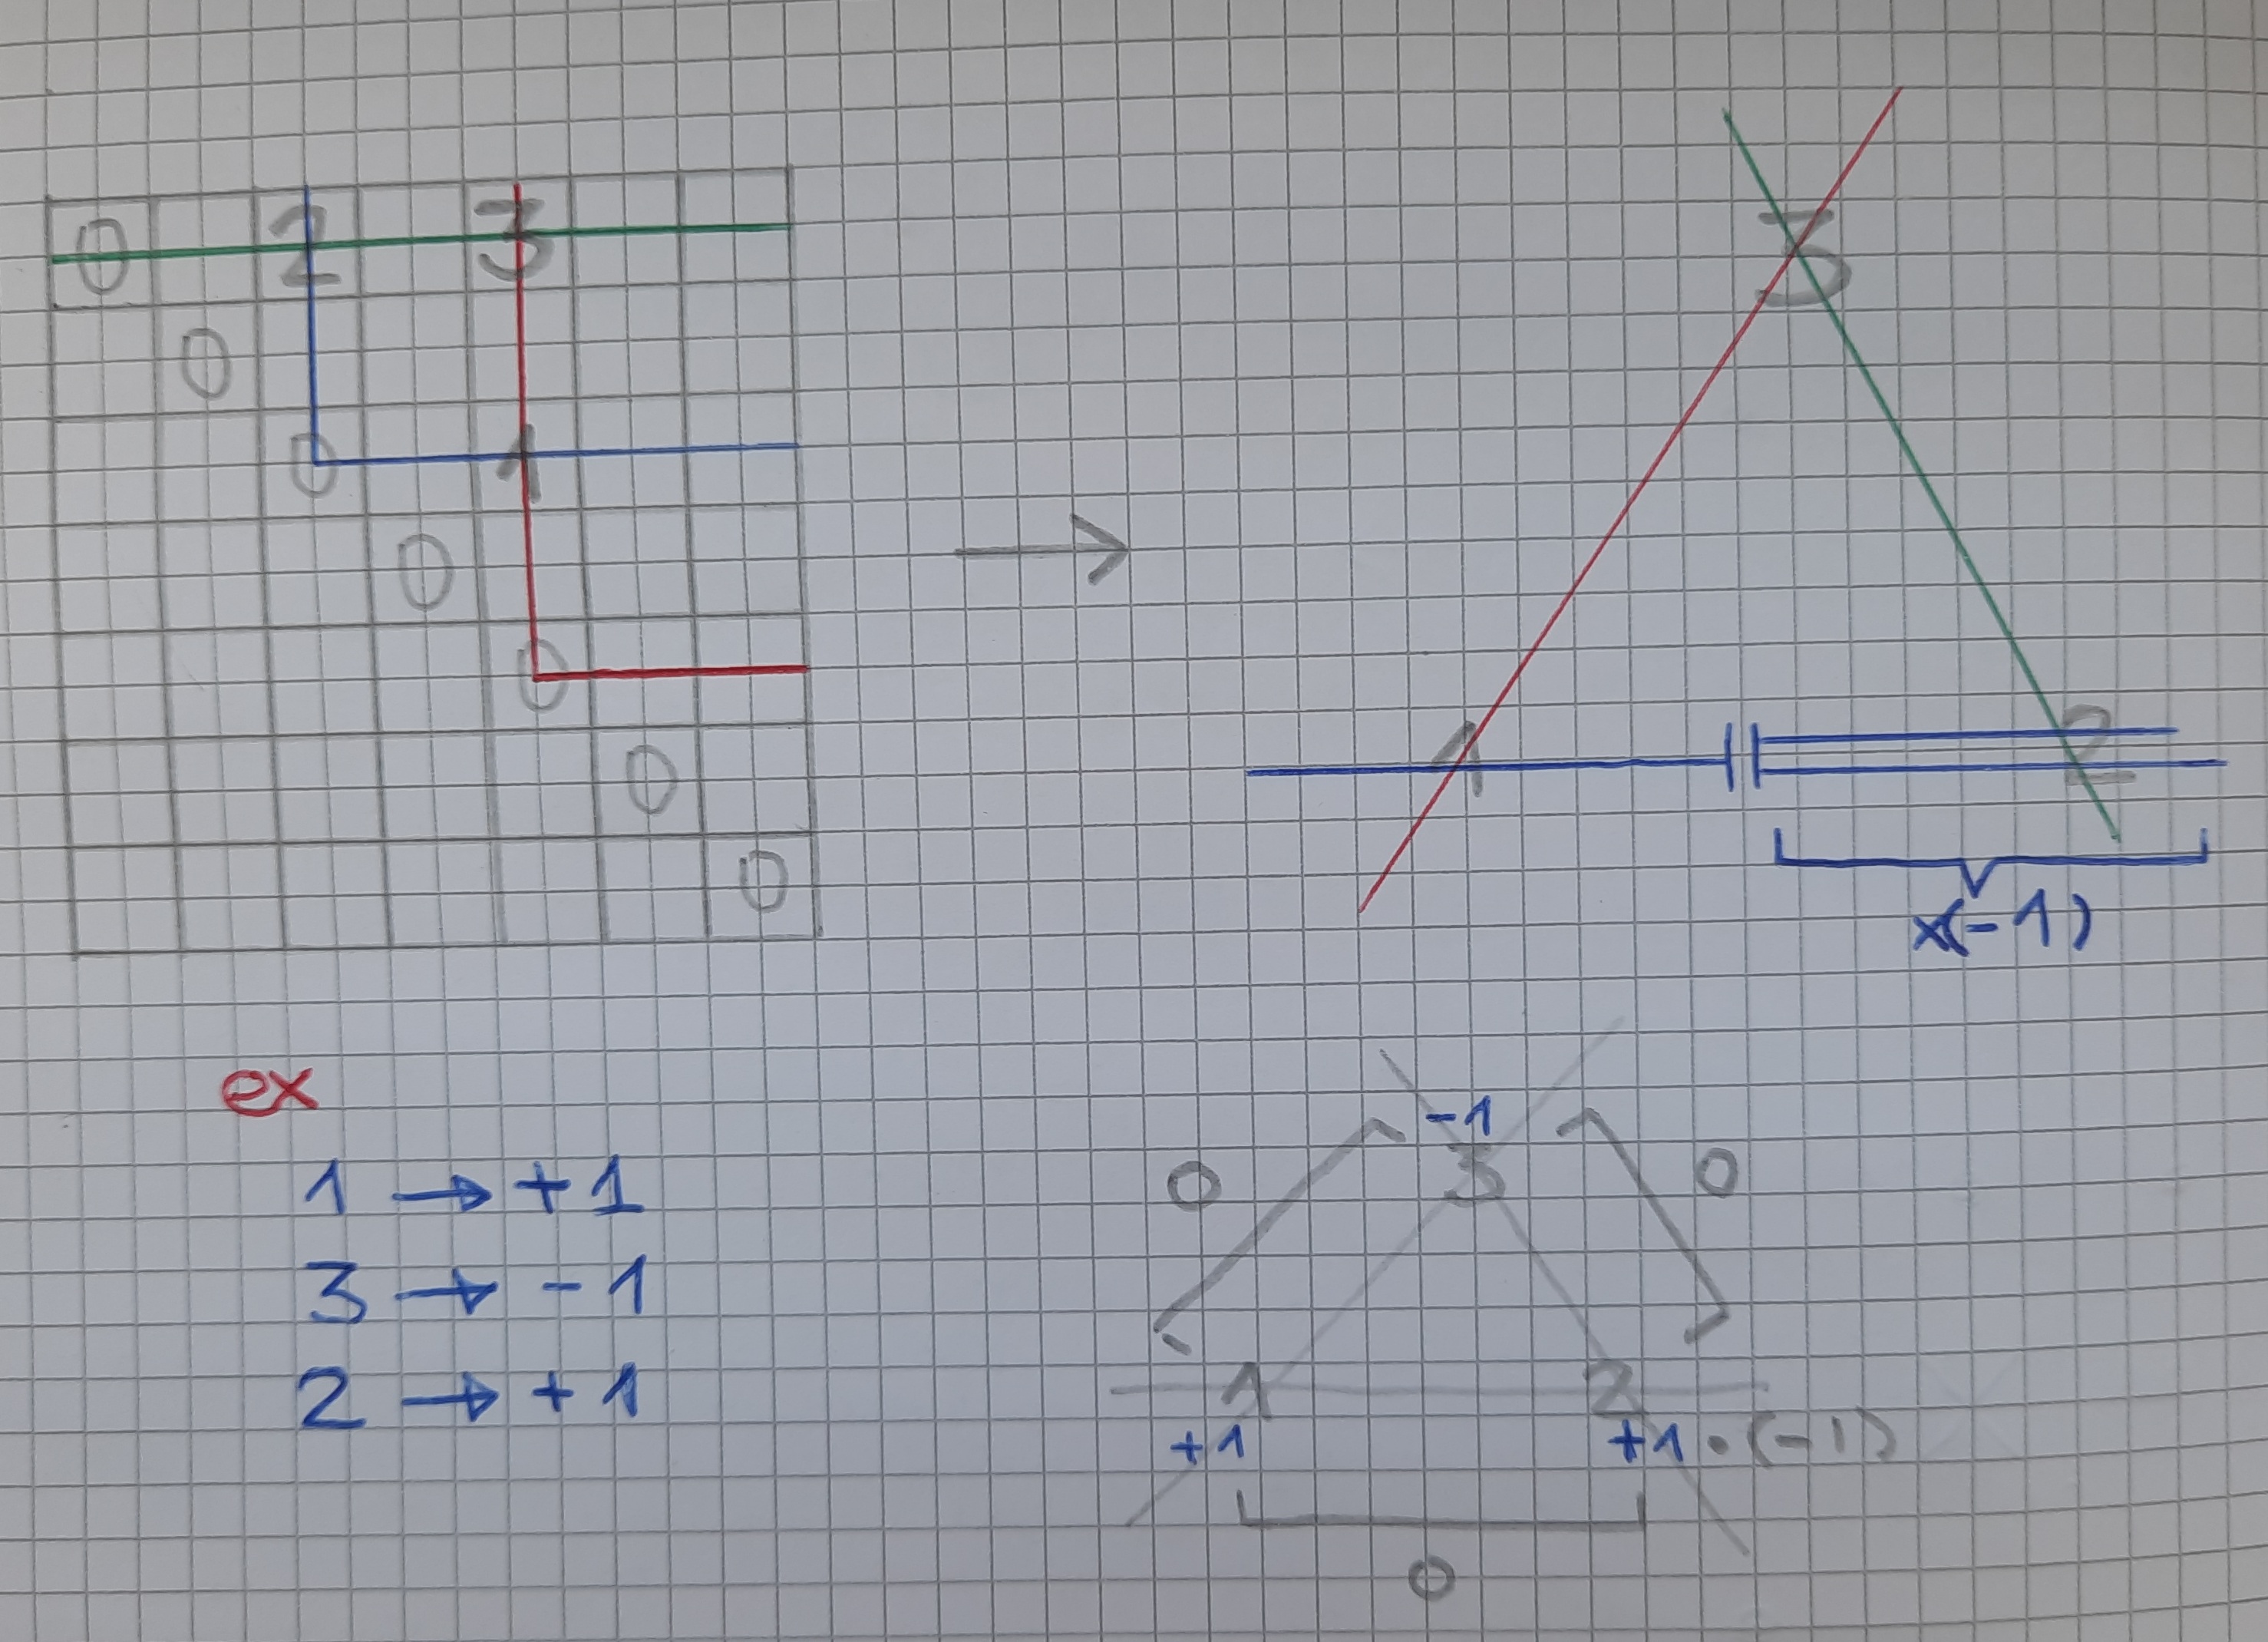 0 2 3
0
0 1
0
0
0
0
3
1 2
x(-1)
ex
1 → +1
3 → -1
2 → +1
-1
0 3 0
1 2
+1 +1 • (-1)
0